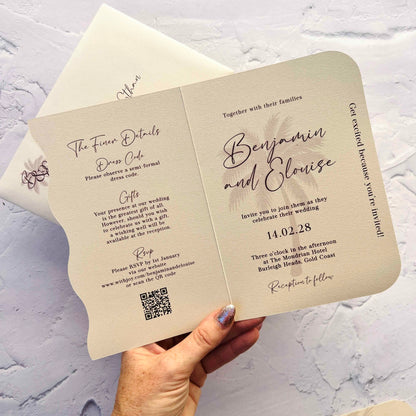 The Finer Details
Dress Code
Please observe a semi-formal
dress code.
Gifts
Your presence at our wedding
is the greatest gift of all.
However, should you wish
to celebrate us with a gift,
a wishing well will be
available at the reception.
Rsvp
Please RSVP by 1st January
via our website
www.withjoy.com/benjaminandelouise
or scan the QR code
Together with their families
Benjamin
and Elouise
Invite you to join them as they
celebrate their wedding
14.02.28
Three o'clock in the afternoon
at The Mondrian Hotel
Burleigh Heads, Gold Coast
Reception to follow
Get excited because you're invited!